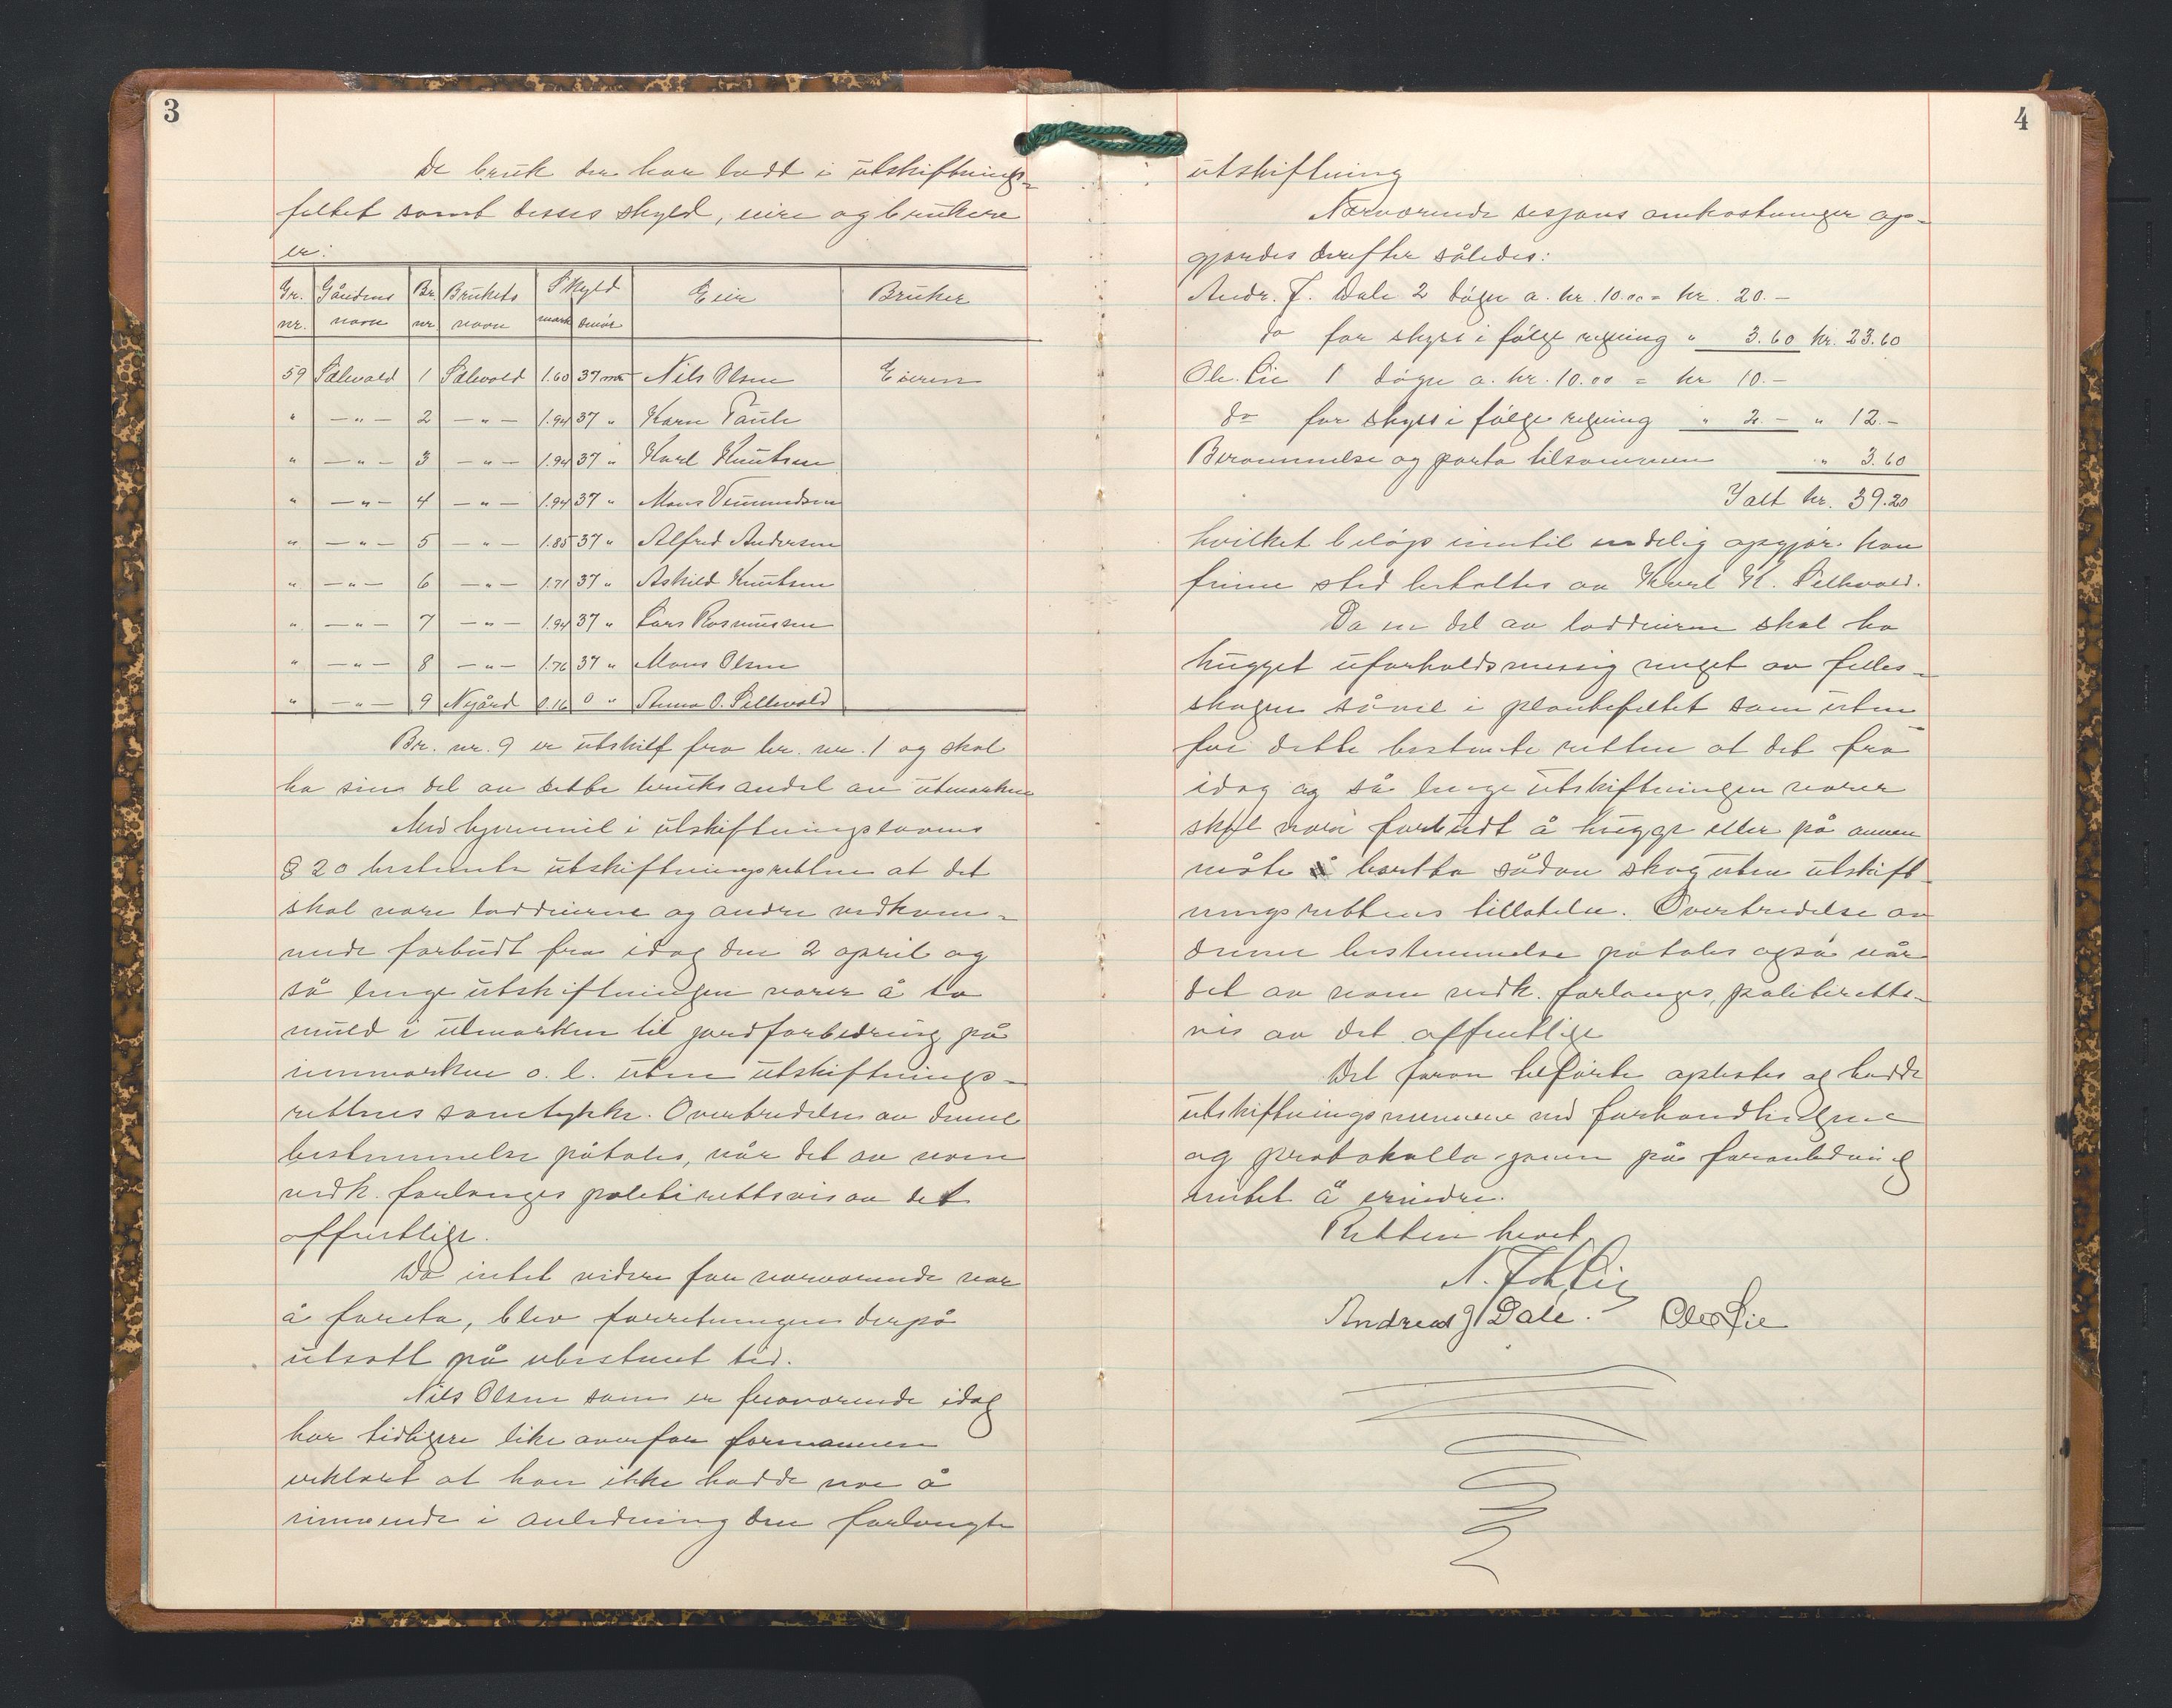 3
De bruk der har lodd i utskiftnings-
feltet samt disses skyld, eiere og brukere
er:
Gr. nr. | Gårdens navn | Br. nr. | Brukets navn | Skyld mark | Smør | Eier | Bruker
59 Sælevold 1 Sælevold 1.60 37 mk Nils Olsen Eieren
" —"— 2 —"— 1.94 37 " Karn Paule
" —"— 3 —"— 1.94 37 " Karl Knutsen
" —"— 4 —"— 1.94 37 " Mons Vemundsen
" —"— 5 —"— 1.85 37 " Alfred Andersen
" —"— 6 —"— 1.71 37 " Askild Knutsen
" —"— 7 —"— 1.94 37 " Lars Rasmussen
" —"— 8 —"— 1.76 37 " Mons Olsen
" —"— 9 Nygård 0.16 0 " Anna O. Sellevold
Br. nr. 9 er utskilt fra br. nr. 1 og skal
ha sin del av dette bruks andel av utmarken
Med hjemmel i utskiftningslovens
§ 20 bestemte utskiftningsretten at det
skal være loddeierne og andre vedkom-
mende forbudt fra idag den 2 april og
så lenge utskiftningen varer å ta
muld i utmarken til jordforbedring på
innmarken o. l. uten utskiftnings-
rettens samtykke. Overtredelse av denne
bestemmelse påtales, når det av noen
vedk. forlanges politirettsvis av det
offentlige.
Da intet videre for nærværende var
å foreta, blev forretningen derpå
utsatt på ubestemt tid.
Nils Olsen som er fraværende idag
har tidligere like overfor formannen
erklært at han ikke hadde noe å
innvende i anledning den forlangte
4
utskiftning
Nærværende sesjons omkostninger op-
gjordes derefter således:
Andr. J. Dale 2 døgn a. kr. 10.00 = kr. 20.-
do for skyss i følge regning " 3.60 kr. 23.60
Ole Lie 1 døgn a. kr. 10.00 = kr 10.-
do for skyss i følge regning " 2.- " 12.-
Berammelse og porto tilsammen " 3.60
Ialt kr. 39.20
hvilket beløp inntil endelig opgjør kan
finne sted betaltes av Karl K. Sellevold.
Da en del av loddeierne skal ha
hugget uforholdsmessig meget av felles-
skogen såvel i plantefeltet som uten
for dette bestemte retten at det fra
idag og så lenge utskiftningen varer
skal være forbudt å hugge eller på annen
måte bortta sådan skog uten utskift-
ningsrettens tillatelse. Overtredelse av
denne bestemmelse påtales også når
det av noen vedk. forlanges, politiretts-
vis av det offentlige
Det foran tilførte oplestes og hadde
utskiftningsmennene ved forhandlingene
og protokollasjonen på foranledning
intet å erindre.
Retten hevet
N. Joh. Lie
Andreas J Dale. Ole Lie